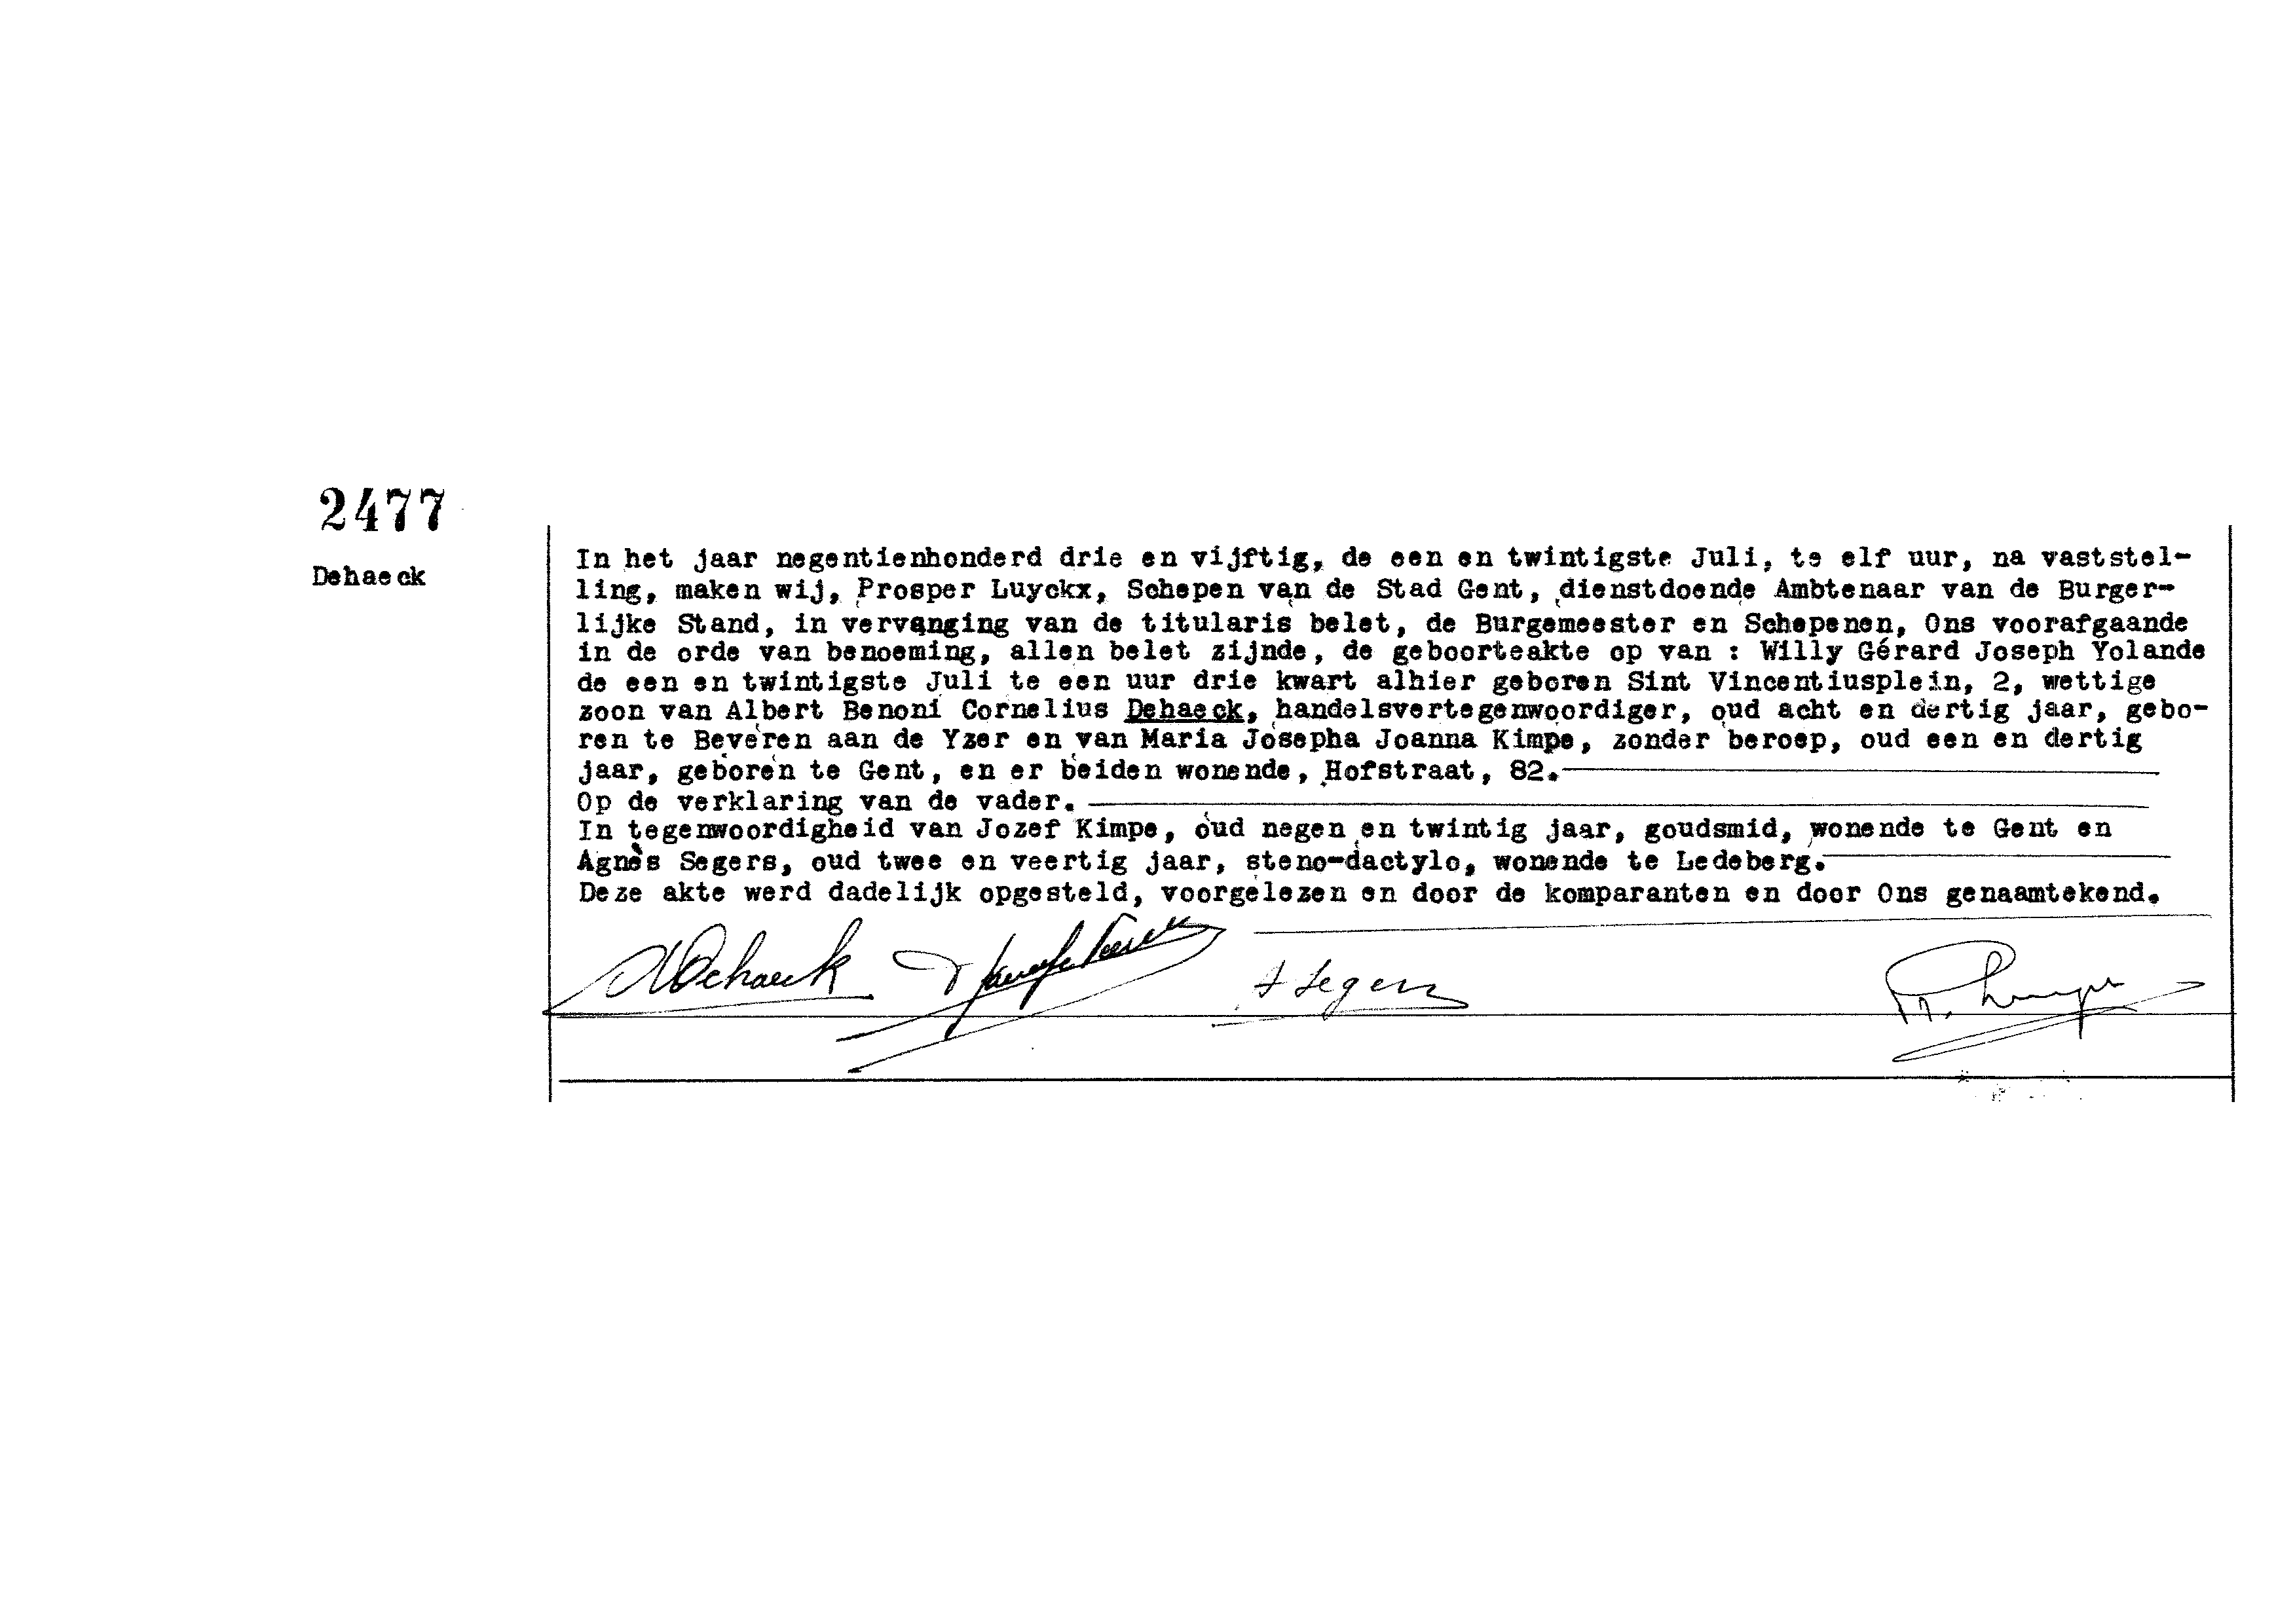 2477
Dehaeck
In het jaar negentienhonderd drie en vijftig, de een en twintigste Juli, te elf uur, na vaststel-
ling, maken wij, Prosper Luyckx, Schepen van de Stad Gent, dienstdoende Ambtenaar van de Burger-
lijke Stand, in vervanging van de titularis belet, de Burgemeester en Schepenen, Ons voorafgaande
in de orde van benoeming, allen belet zijnde, de geboorteakte op van : Willy Gérard Joseph Yolande
de een en twintigste Juli te een uur drie kwart alhier geboren Sint Vincentiusplein, 2, wettige
zoon van Albert Benoni Cornelius Dehaeck, handelsvertegenwoordiger, oud acht en dertig jaar, gebo-
ren te Beveren aan de Yzer en van Maria Josepha Joanna Kimpe, zonder beroep, oud een en dertig
jaar, geboren te Gent, en er beiden wonende, Hofstraat, 82.
Op de verklaring van de vader.
In tegenwoordigheid van Jozef Kimpe, oud negen en twintig jaar, goudsmid, wonende te Gent en
Agnès Segers, oud twee en veertig jaar, steno-dactylo, wonende te Ledeberg.
Deze akte werd dadelijk opgesteld, voorgelezen en door de komparanten en door Ons genaamtekend.
ADehaeck A Segers